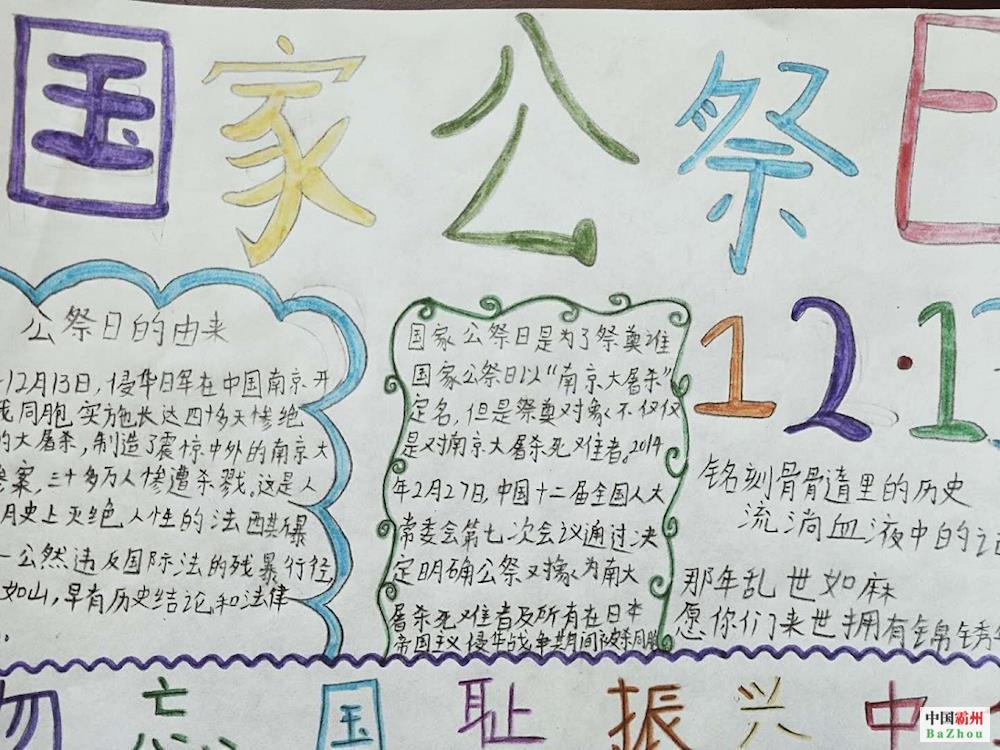 国家公祭日
公祭日的由来
12月13日,侵华日军在中国南京开
我同胞,实施长达四十多天惨绝
的大屠杀,制造了震惊中外的南京大
惨案,三十多万人惨遭杀戮。这是人
历史上灭绝人性的法西斯暴
公然违反国际法的残暴行径,
如山,早有历史结论和法律
国家公祭日是为了祭奠谁
国家公祭日以“南京大屠杀”
定名,但是祭奠对象不仅仅
是对南京大屠杀死难者。2014
年2月27日,中国十二届全国人大
常委会第七次会议通过决
定明确公祭对象为南大
屠杀死难者及所有在日本
帝国主义侵华战争期间被杀同胞
12·13
铭刻骨骨遗里的历史
流淌血液中的记
那年乱世如麻
愿你们来世拥有锦锈
勿忘国耻振兴中
中国霸州
BaZhou